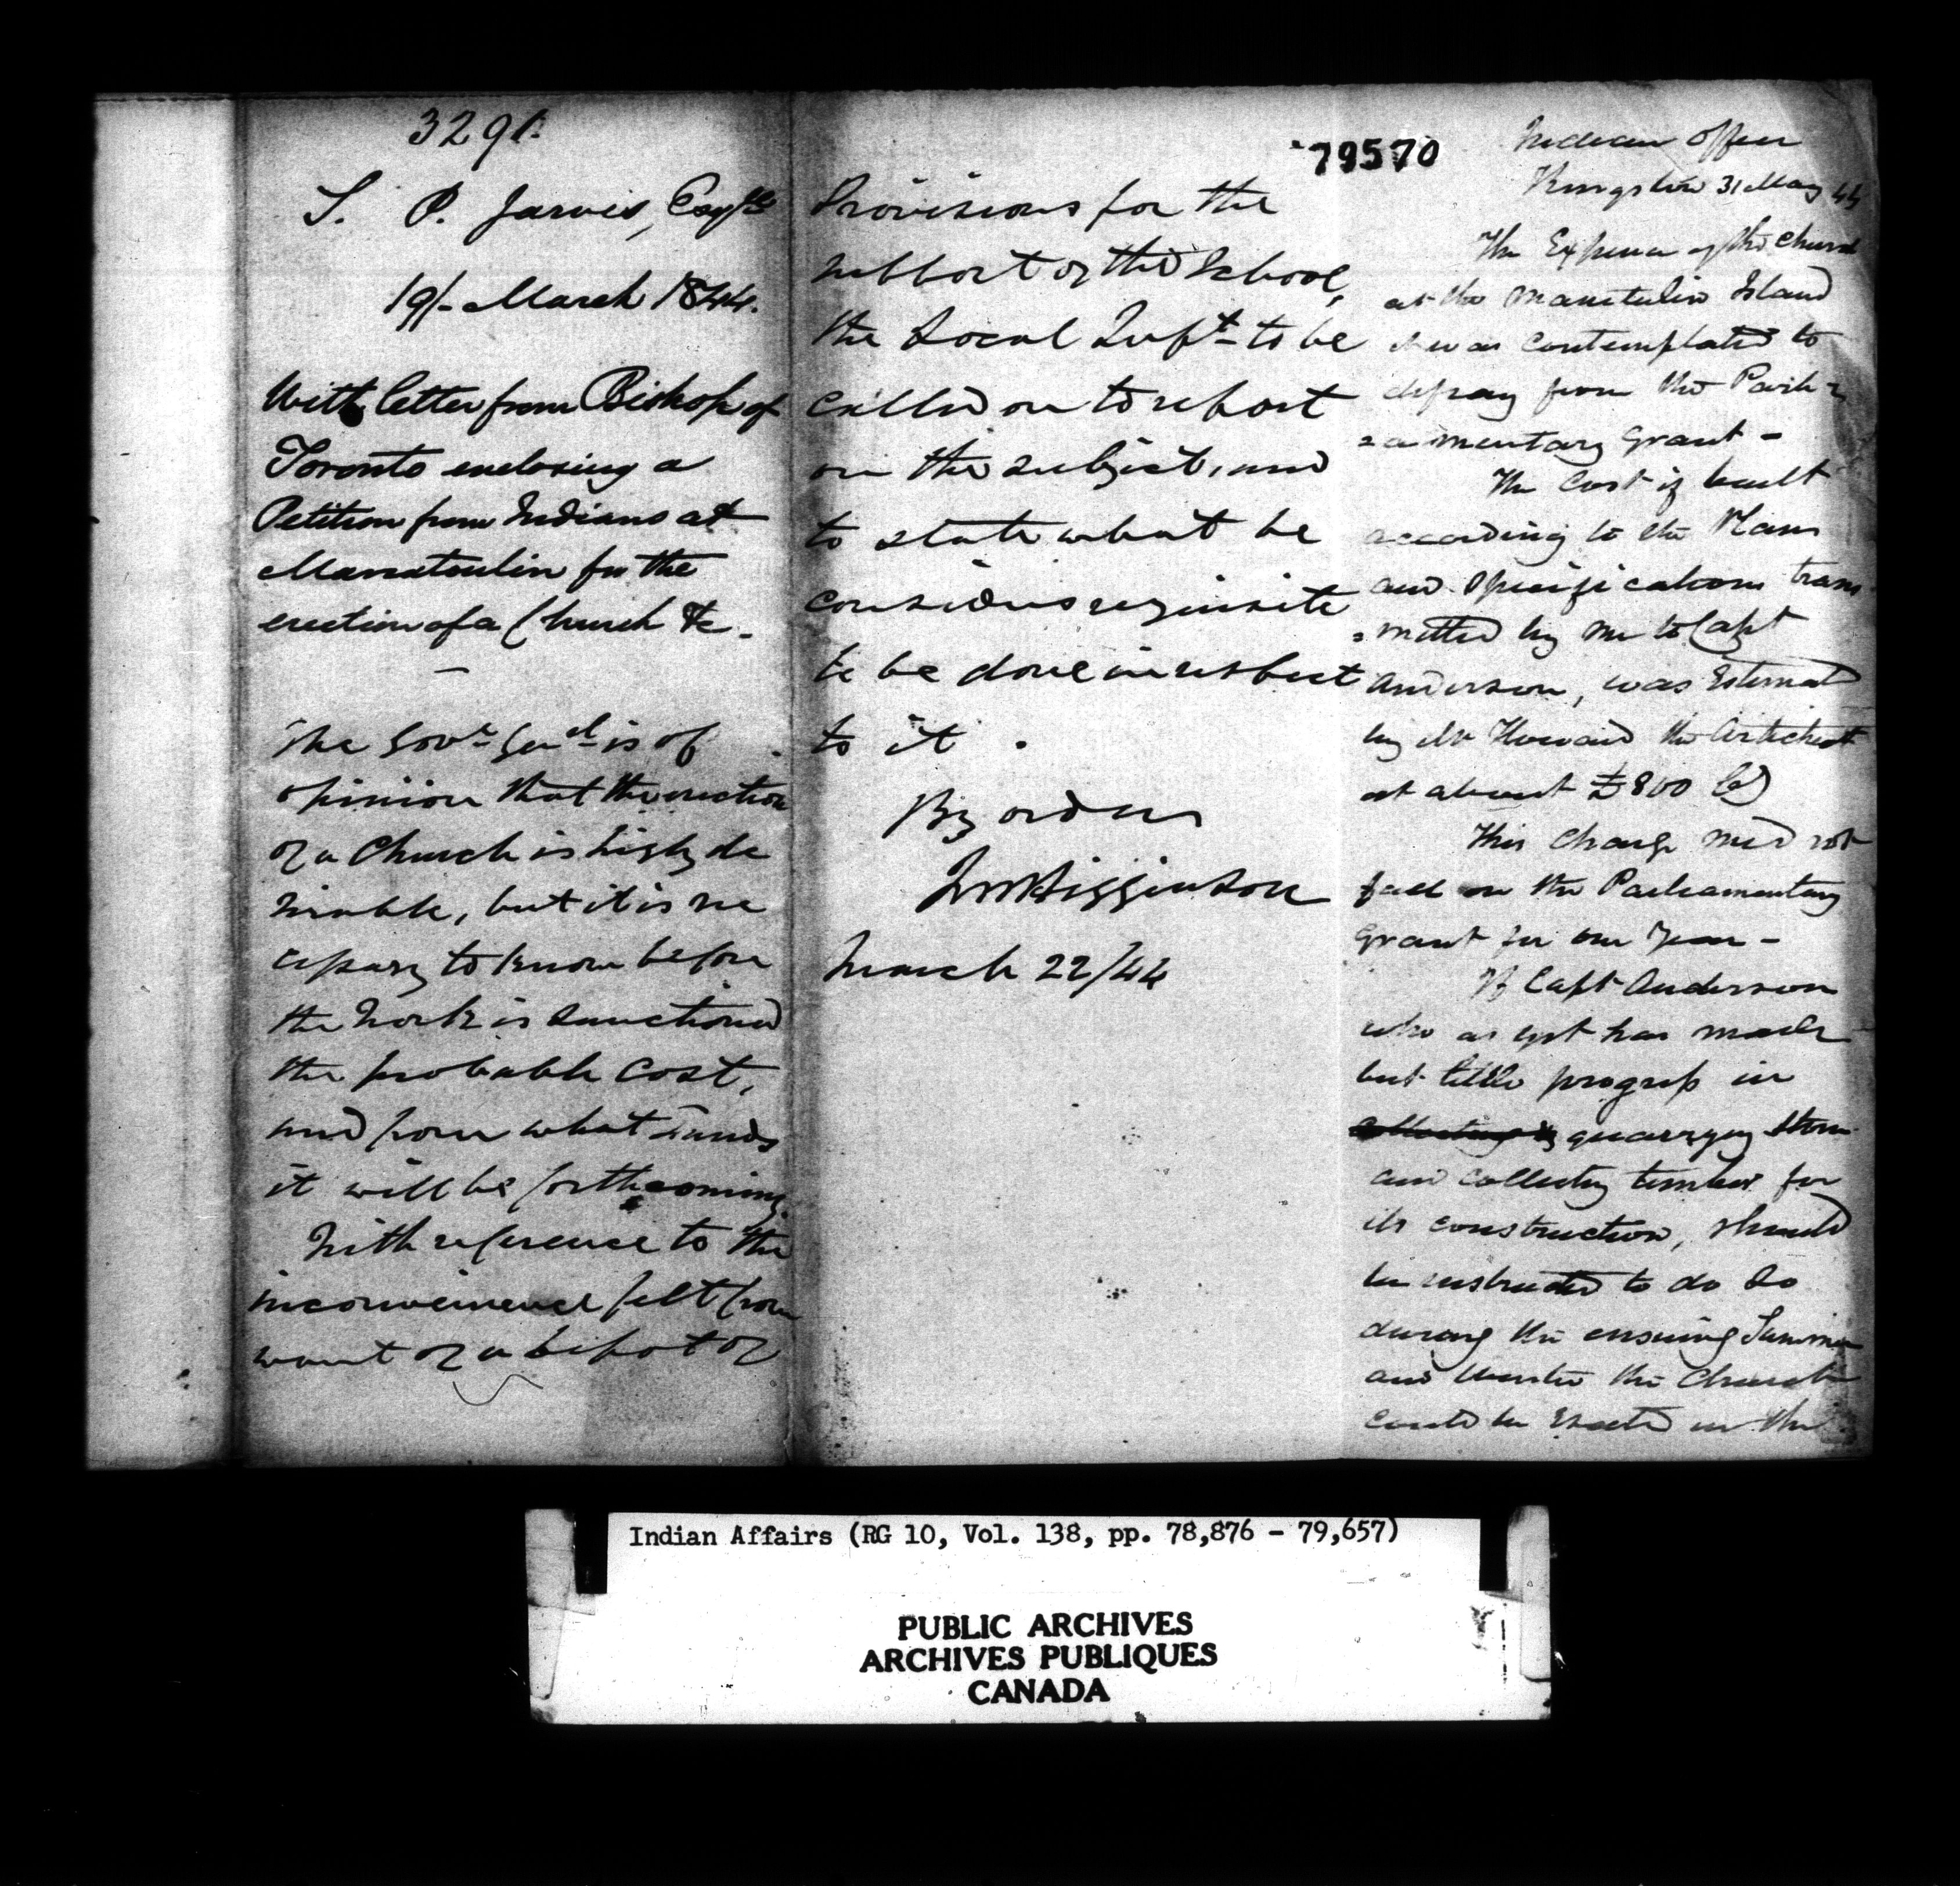 3291.
S. P. Jarvis, Esqre
19/- March 1844.
With letter from Bishop of
Toronto enclosing a
Petition from Indians at
Manatoulin for the
erection of a Church &c.
The Govr Genl is of
opinion that the erection
of a Church is highly de
sirable, but it is ne
cessary to know before
the work is sanctioned
the probable cost,
and from what funds
it will be forthcoming.
With reference to the
inconvenience felt from
want of a depot of
79570
Provisions for the
support of the School,
the Local Supt to be
called on to report
on the subject, and
to state what he
considers requisite
to be done in respect
to it.
By order
JM Higginson
March 22/44
Indian Office
Kingston 31 May 44
The Expence of the Church
at the Manetulin Island
it was contemplated to
defray from the Parli-
=amentary Grant -
The Cost if built
according to the Plans
and Specifications trans
=mitted by me to Capt
Anderson, was Estimated
by Mr Howard the Artichect
at about £800
This charge need not
fall on the Parliamentary
Grant for one Year -
If Capt Anderson
who as yet has made
but little progress in
quarrying Stone
and collecting timber for
its construction, should
be instructed to do so
during the ensuing Summer
and Winter the Church
could be Erected in the
Indian Affairs (RG 10, Vol. 138, pp. 78,876 - 79,657)
PUBLIC ARCHIVES
ARCHIVES PUBLIQUES
CANADA